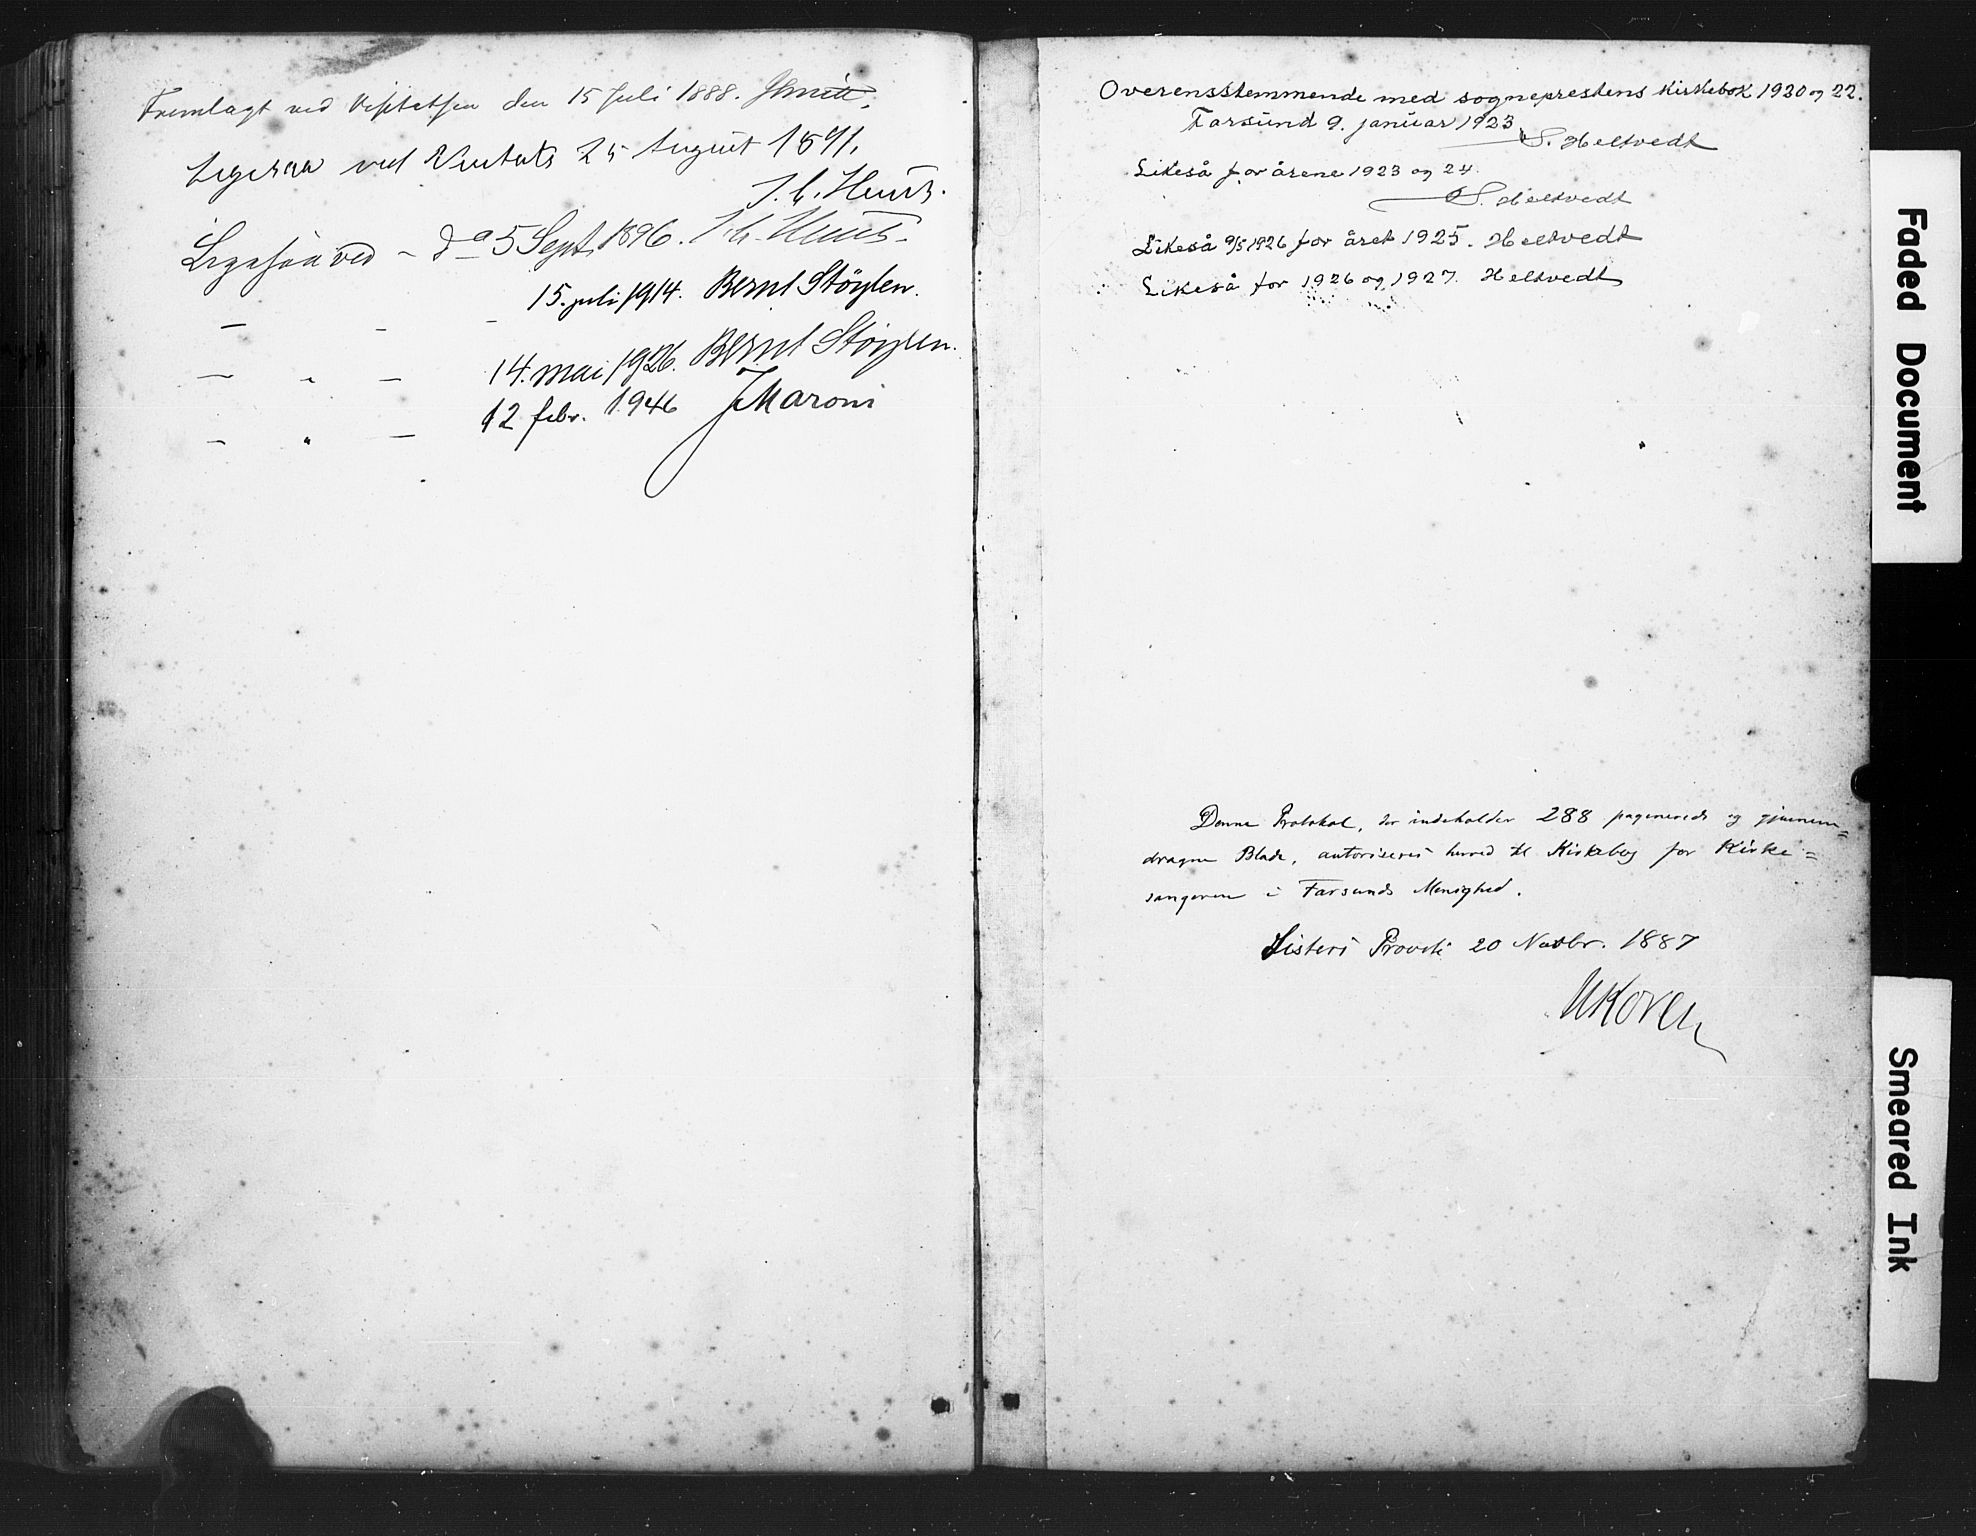 Fremlagt ved Visitatsen den 15 Juli 1888.
Ligesaa ved Visitats 25 August 1891.
J. C. Heuch.
Ligesaa ved – d<sup>o</sup> 5 Sept. 1896. J. C. Heuch.
– – – 15. juli 1914. Bernt Støylen.
– " – 14. mai 1926. Bernt Støylen.
– " – 12 febr. 1946 J Maroni
Overensstemmende med sogneprestens kirkebok 1920 og 22.
Farsund 9. januar 1923
S. Heltvedt
Likeså for årene 1923 og 24.
S. Heltvedt
Likeså 9/5 1926 for året 1925. Heltvedt
Likeså for 1926 og 1927. Heltvedt
Denne Protokol, der indeholder 288 paginerede og gjennem=
dragne Blade, autoriseres herved til Kirkebog for Kirke=
sangeren i Farsunds Menighed.
Listers Provsti 20 Novbr. 1887
Koren
Faded Document
Smeared Ink